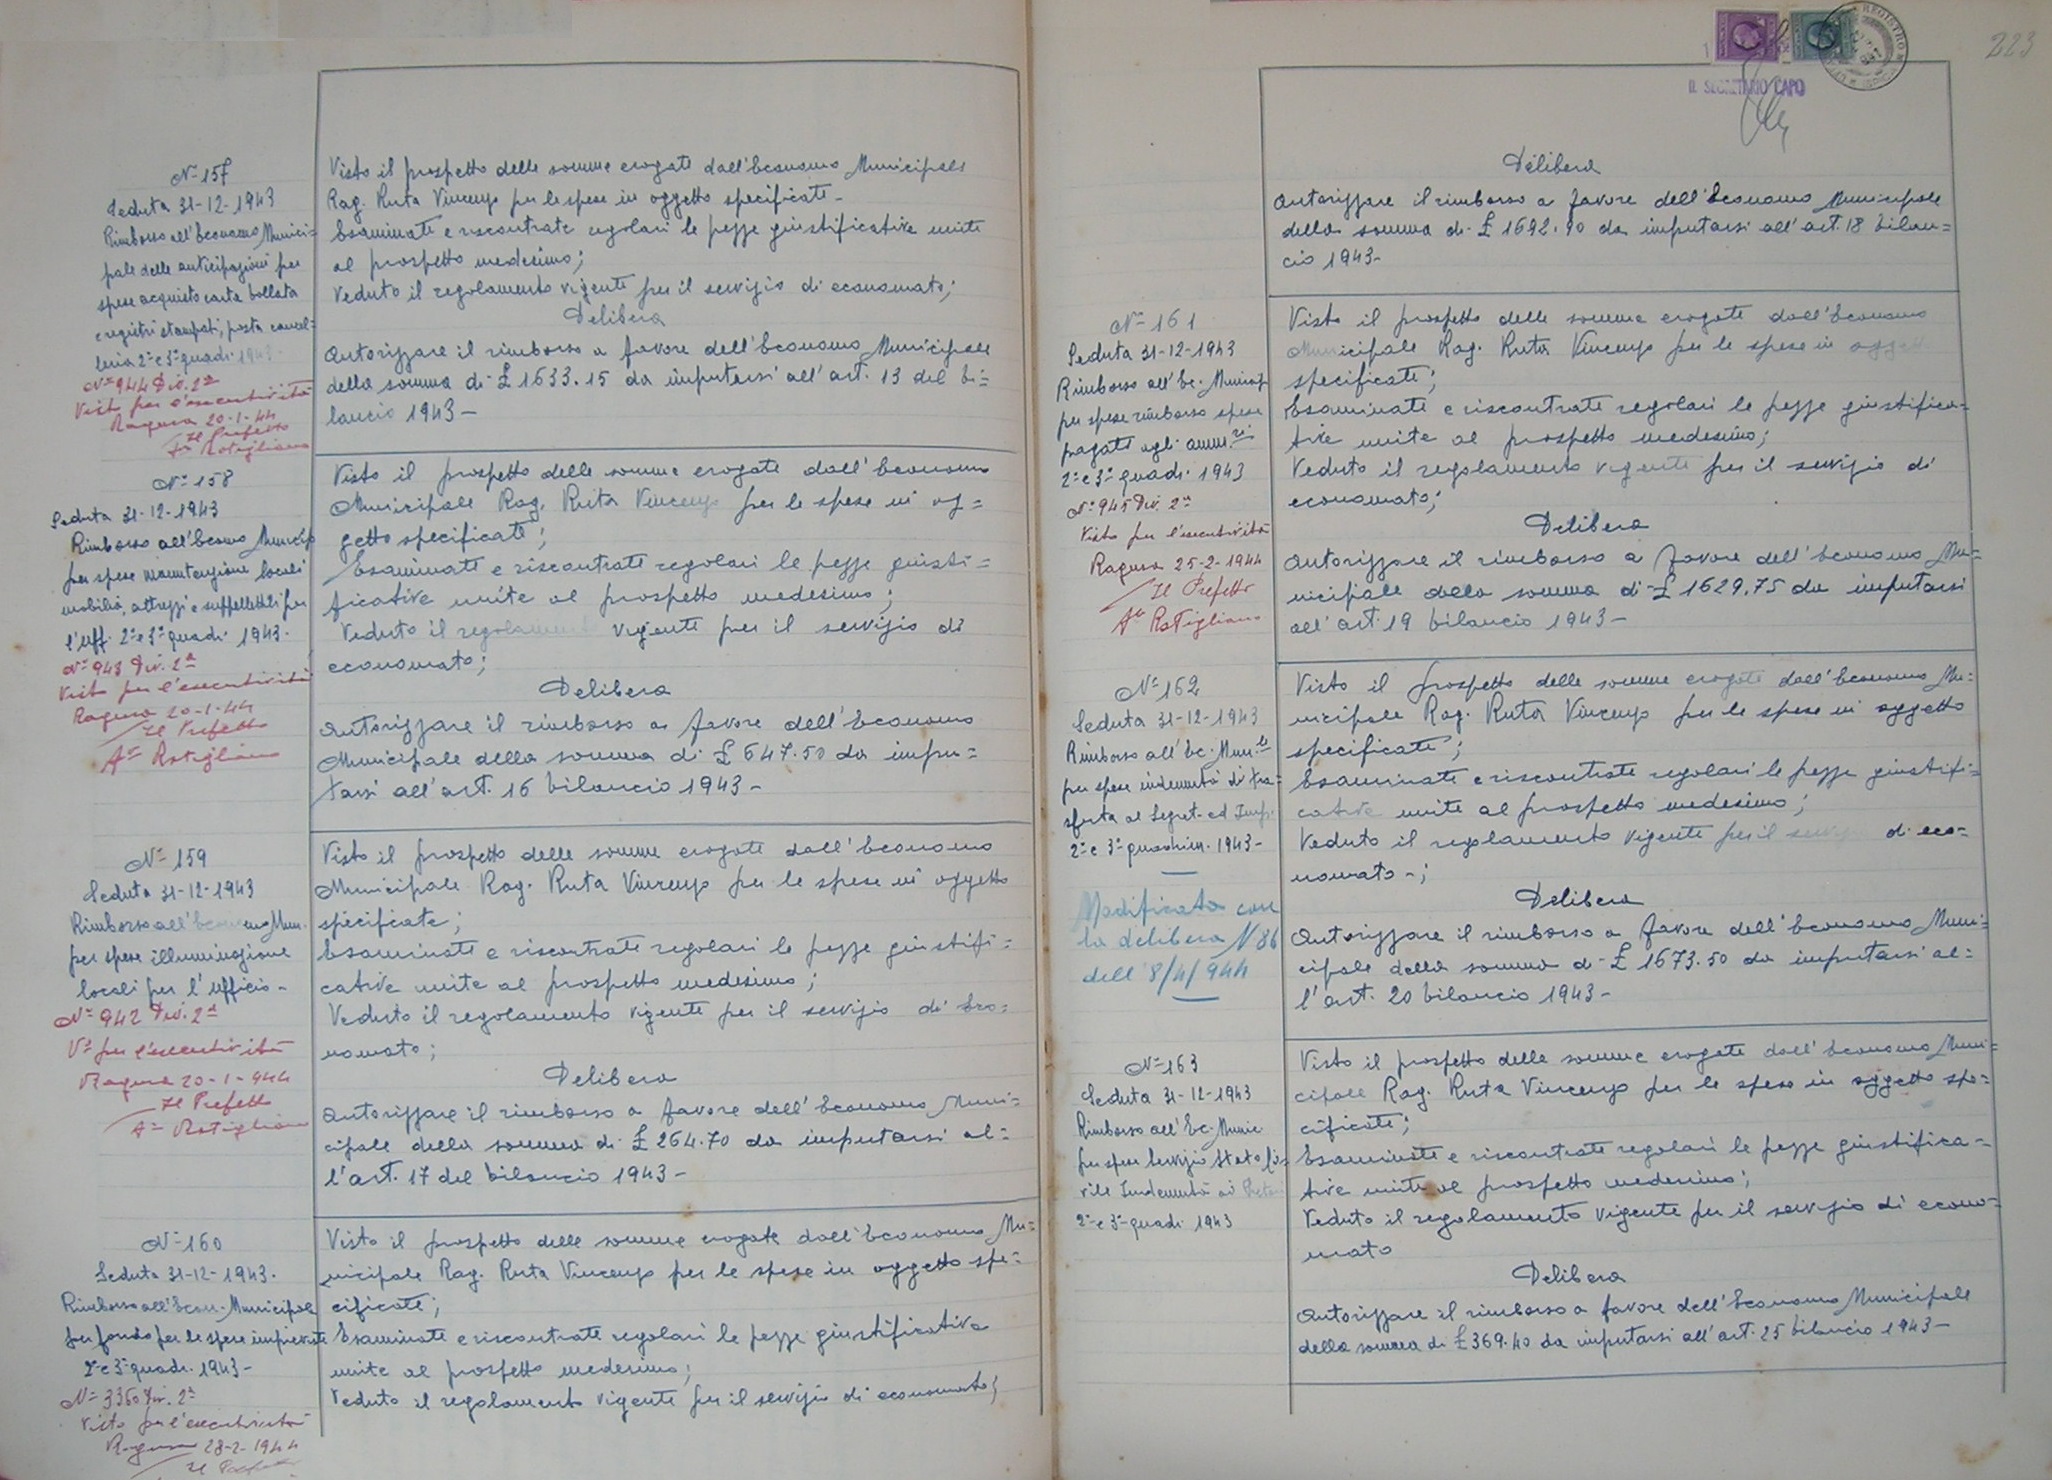 N° 157
Seduta 31-12-1943
Rimborso all'Economo Munici-
pale delle anticipazioni per
spese acquisto carta bollata
e registri stampati, posta cancel=
leria 2° e 3° quadr. 1943.
N° 944 Div. 2ª
Visto per l'esecutività
Ragusa 20-1-44
Il Prefetto
Visto il prospetto delle somme erogate dall'Economo Municipale
Rag. Ruta Vincenzo per le spese in oggetto specificate-
Esaminate e riscontrate regolari le pezze giustificative unite
al prospetto medesimo;
Veduto il regolamento vigente per il servizio di economato;
Delibera
Autorizzare il rimborso a favore dell'Economo Municipale
della somma di £ 1633.15 da imputarsi all'art. 13 del bi=
lancio 1943-
N° 158
Seduta 31-12-1943
Rimborso all'Econo Municip
per spese manutenzione locali
mobilio, attrezzi e suppellettili per
l'uff. 2° e 3° quadr. 1943.
N° 943 Div. 2ª
Visto per l'esecutività
Ragusa 20-1-44
Il Prefetto
Visto il prospetto delle somme erogate dall'Economo
Municipale Rag. Ruta Vincenzo per le spese in og=
getto specificate;
Esaminate e riscontrate regolari le pezze giusti=
ficative unite al prospetto medesimo;
Veduto il regolament vigente per il servizio di
economato;
Delibera
Autorizzare il rimborso a favore dell'Economo
Municipale della somma di £ 647.50 da impu=
tarsi all'art. 16 bilancio 1943-
N° 159
Seduta 31-12-1943
Rimborso all'Economo Mun.
per spese illuminazione
locali per l'ufficio-
N° 942 Div. 2ª
V° per l'esecutività
Ragusa 20-1-944
Il Prefetto
Visto il prospetto delle somme erogate dall'Economo
Municipale Rag. Ruta Vincenzo per le spese in oggetto
specificate;
Esaminate e riscontrate regolari le pezze giustifi=
cative unite al prospetto medesimo;
Veduto il regolamento vigente per il servizio di eco=
nomato;
Delibera
Autorizzare il rimborso a favore dell'Economo Muni=
cipale della somma di £ 264.70 da imputarsi al=
l'art. 17 del bilancio 1943-
N° 160
Seduta 31-12-1943.
Rimborso all'Econ. Municipale
per fondo per le spese impreviste
2° e 3° quadr. 1943-
N° 3360 Div. 2ª
Visto per l'esecutività
Ragusa 28-2-1944
Il Prefetto
Visto il prospetto delle somme erogate dall'Economo Mu=
nicipale Rag. Ruta Vincenzo per le spese in oggetto spe=
cificate;
Esaminate e riscontrate regolari le pezze giustificative
unite al prospetto medesimo;
Veduto il regolamento vigente per il servizio di economato;
223
IL SEGRETARIO CAPO
Delibera
Autorizzare il rimborso a favore dell'Economo Municipale
della somma di £ 1692.90 da imputarsi all'art. 18 bilan=
cio 1943-
N° 161
Seduta 31-12-1943
Rimborso all'Ec. Municip
per spese rimborso spese
pagate agli amm.ri
2° e 3° quadr. 1943
N° 945 Div. 2ª
Visto per l'esecutività
Ragusa 25-2-1944
Il Prefetto
Visto il prospetto delle somme erogate dall'Economo
Municipale Rag. Ruta Vincenzo per le spese in ogget
specificate;
Esaminate e riscontrate regolari le pezze giustifica=
tive unite al prospetto medesimo;
Veduto il regolamento vigente per il servizio di
economato;
Delibera
Autorizzare il rimborso a favore dell'Economo Mu=
nicipale della somma di £ 1629.75 da imputarsi
all'art. 19 bilancio 1943-
N° 162
Seduta 31-12-1943
Rimborso all'Ec. Mun.le
per spese indennità di tra=
sferta al Segret. ed Imp.
2° e 3° quadrim. 1943-
Modificata con
la delibera N 86
dell'8/4/944
Visto il prospetto delle somme erogate dall'Economo Mu=
nicipale Rag. Ruta Vincenzo per le spese in oggetto
specificate;
Esaminate e riscontrate regolari le pezze giustifi=
cative unite al prospetto medesimo;
Veduto il regolamento vigente per il servizi di eco=
nomato-;
Delibera
Autorizzare il rimborso a favore dell'Economo Muni=
cipale della somma di £ 1673.50 da imputarsi al=
l'art. 20 bilancio 1943-
N° 163
Seduta 31-12-1943
Rimborso all'Ec. Munic.
per spese Servizio Stato Ci=
vile Indennità ai
2° e 3° quadr. 1943
Visto il prospetto delle somme erogate dall'Economo Muni=
cipale Rag. Ruta Vincenzo per le spese in oggetto spe=
cificate;
Esaminate e riscontrate regolari le pezze giustifica=
tive unite al prospetto medesimo;
Veduto il regolamento vigente per il servizio di econo=
mato
Delibera
Autorizzare il rimborso a favore dell'Economo Municipale
della somma di £ 369.40 da imputarsi all'art. 25 bilancio 1943-